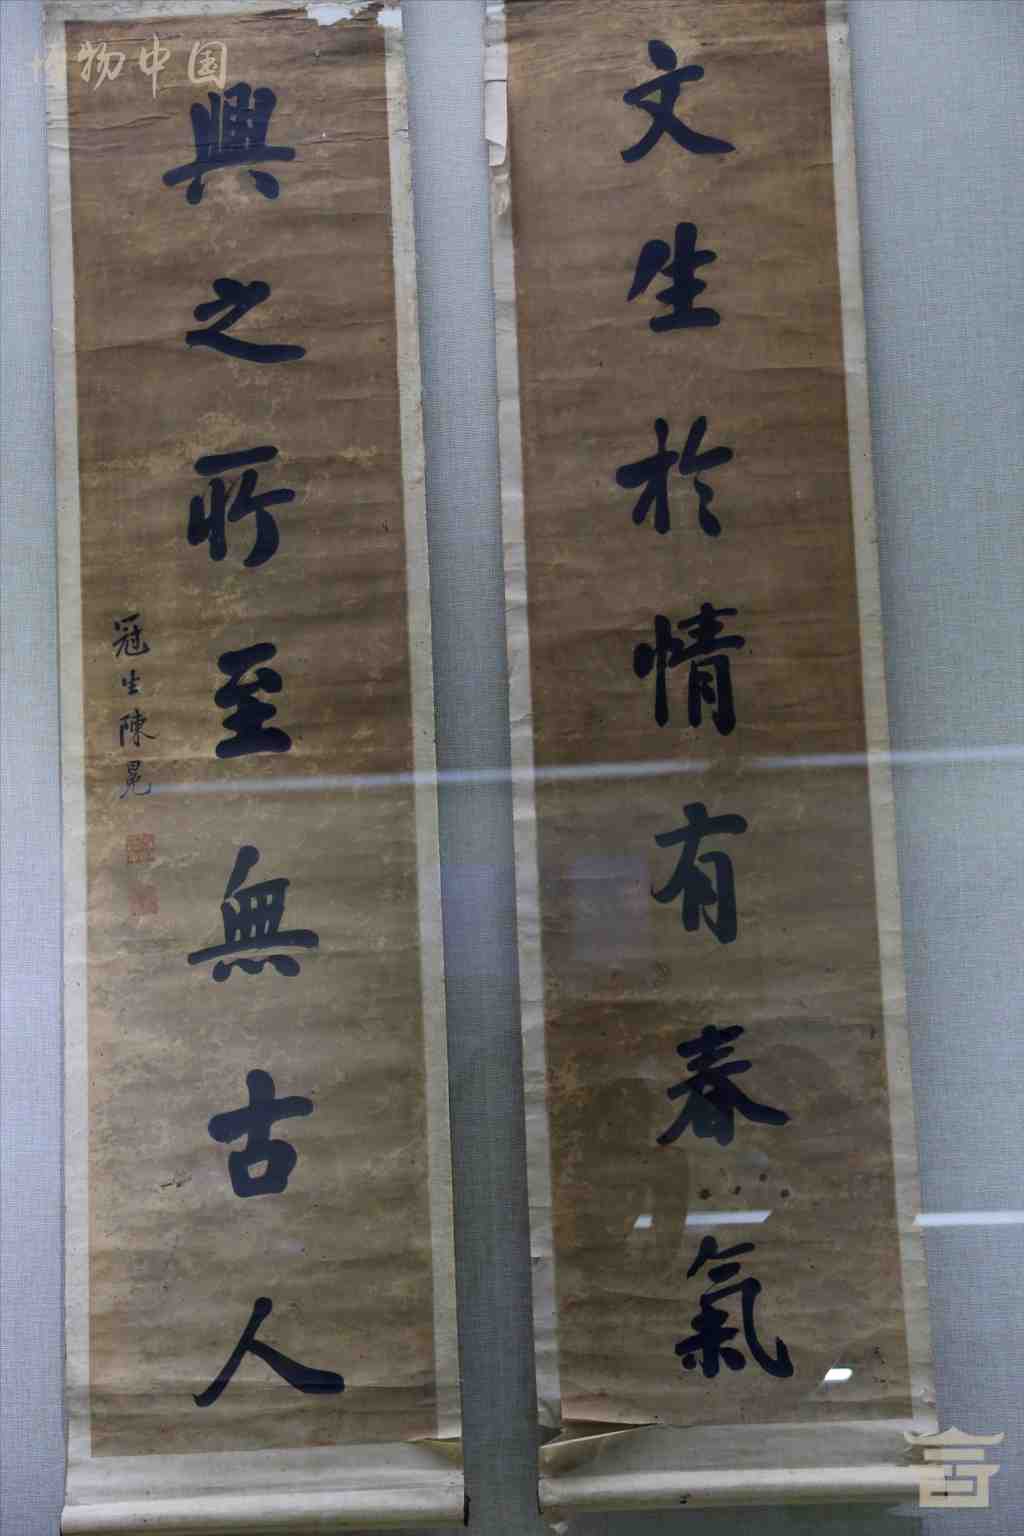 文生於情有春氣
興之所至無古人
冠生陳冕
博物中国